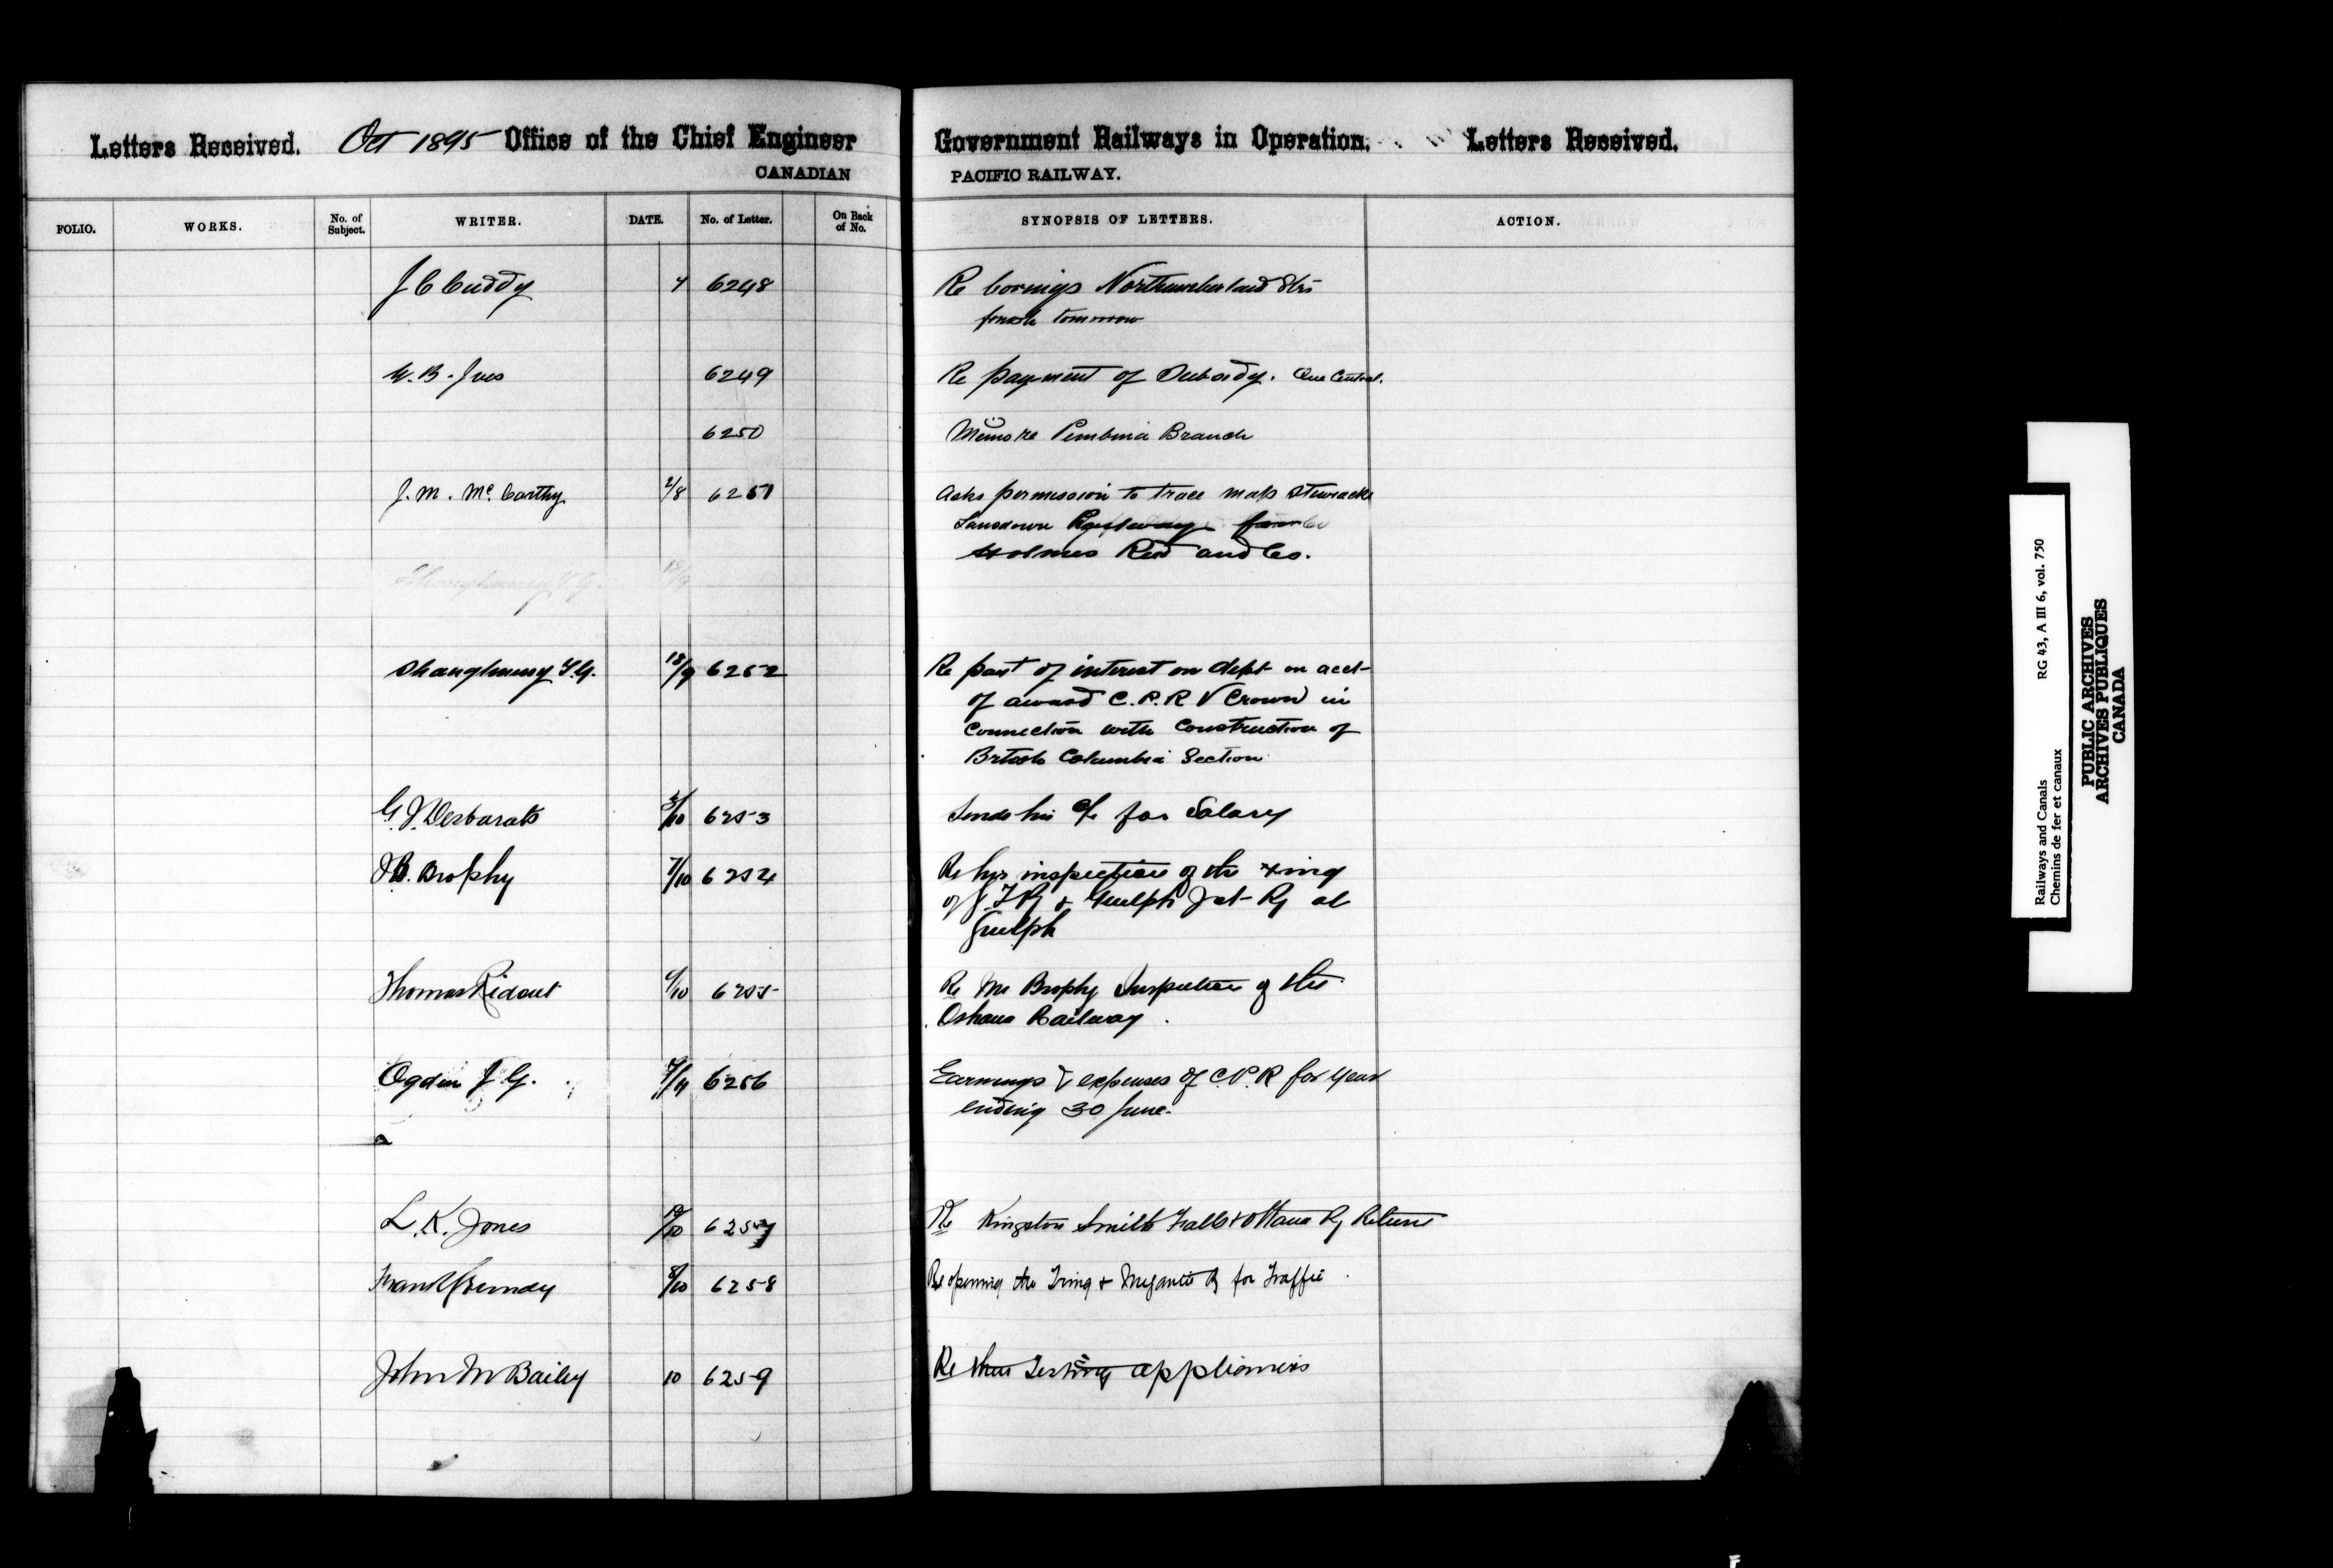 Letters Received. Oct 1895 Office of the Chief Engineer Government Railways in Operation. Letters Received.
CANADIAN PACIFIC RAILWAY.
FOLIO. WORKS. No. of Subject. WRITER. DATE. No. of Letter. On Back of No. SYNOPSIS OF LETTERS. ACTION.
J C Cuddy 4 6248 Re borings Northumberland Strs
finish tomorrow
W. B. Ives 6249 Re payment of Subsidy. Que Central.
6250 Memo re Pembina Branch
J. M. McCarthy 2/8 6251 Asks permission to trace map Stewiacke
Lansdown Railway for
Holmes Reid and Co.
Shaughnessy T. G. 18/9
Shaughnessy T. G. 18/9 6252 Re part of interest on debt on acct
of award C.P.R V Crown in
Connection with Construction of
British Columbia Section
G. J. Desbarats 5/10 6253 Sends his a/c for Salary
J B. Brophy 7/10 6254 Re his inspection of the Xing
of G T Ry & Guelph Jct Ry at
Guelph
Thomas Ridout 6/10 6255 Re Mr Brophy Inspection of the
Oshawa Railway.
Ogden J. G. 7/9 6256 Earnings & expenses of C.P.R for Year
ending 30 June.
L. K. Jones /10 6257 Re Kingston Smiths Falls & Ottawa Ry Returns
Frank Grundy 8/10 6258 Re opening the Tring & Megantic Ry for Traffic
John M Bailey 10 6259 Re their Testing appliances
Railways and Canals RG 43, A III 6, vol. 750
Chemins de fer et canaux
PUBLIC ARCHIVES
ARCHIVES PUBLIQUES
CANADA